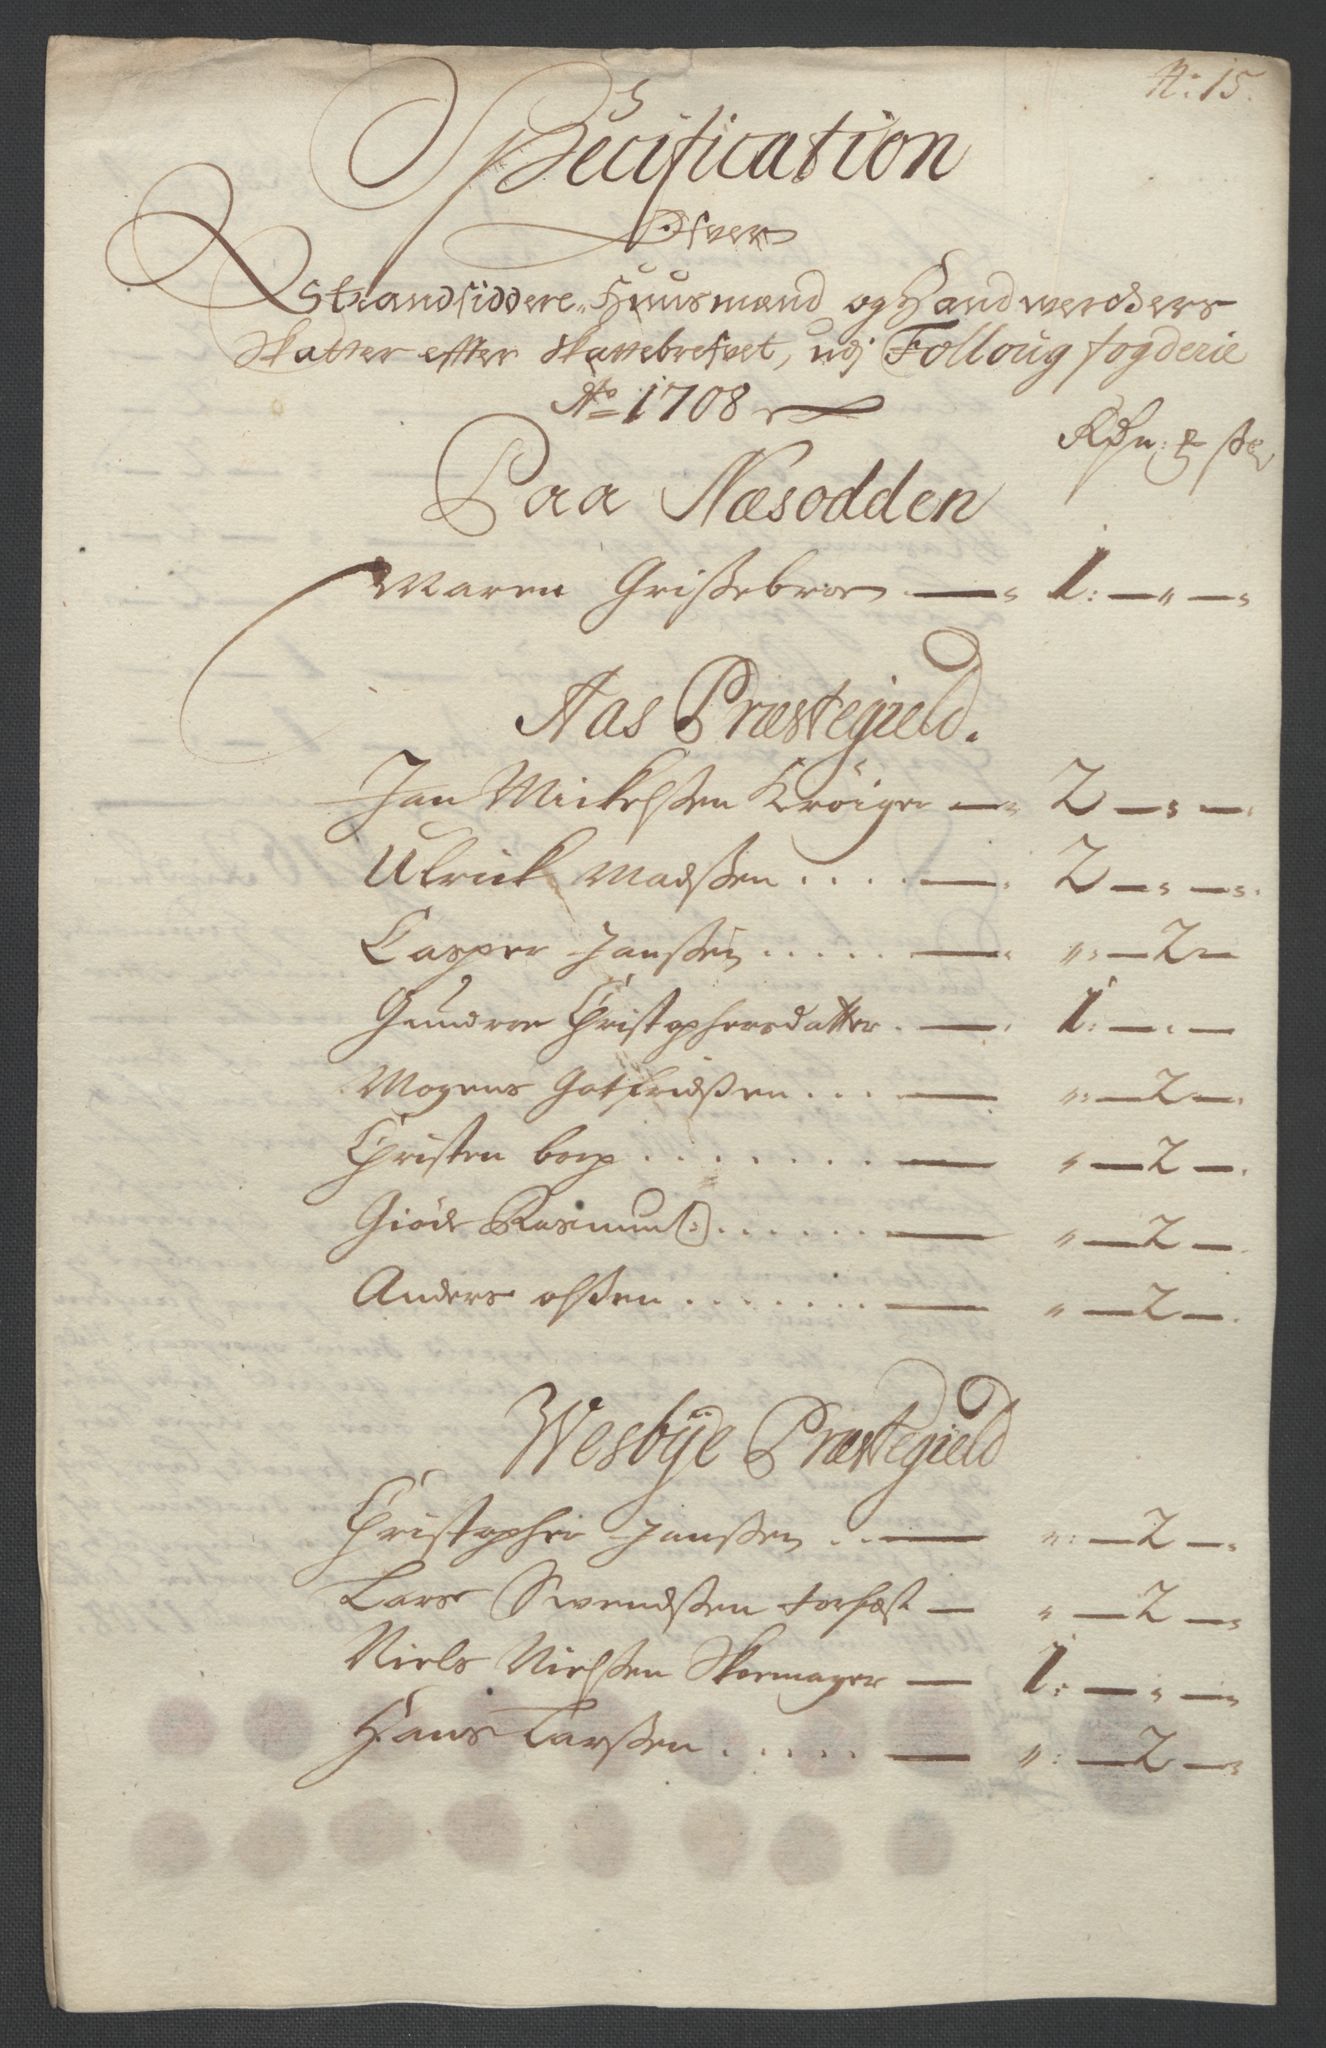 N: 15.
Specification
Ofver
Strandsiddere, Huusmænd og Handwerchers
Skatter effter Skattebrefvet, udj Folloug fogderie
Ao 1708
Rdr: ß
Paa Næsodden
Maren Grißebroe — 1: — " —
Aas Præstegield.
Jan Mickelßen Krøiger — 2 — " —
Ulrick Madßen . . . . — 2 — " —
Casper Janßen . . . . . — ": — 2 —
Gundroe Christophersdatter . — 1: — " —
Mogens Gotfridßen . . . — ": — 2 —
Christen borg . . . . . . . — " — 2 —
Giøde Rasmus(:) . . . . . . — " — 2 —
Anders olßen . . . . . . . — " — 2 —
Wesbÿe Præstegield
Christopher Janßen . . — ": — 2 —
Lars Swendßen torfæst — " — 2 —
Niels Nielßen Skoemager — 1: — " —
Hans Larßen . . . . . — ": — 2 —